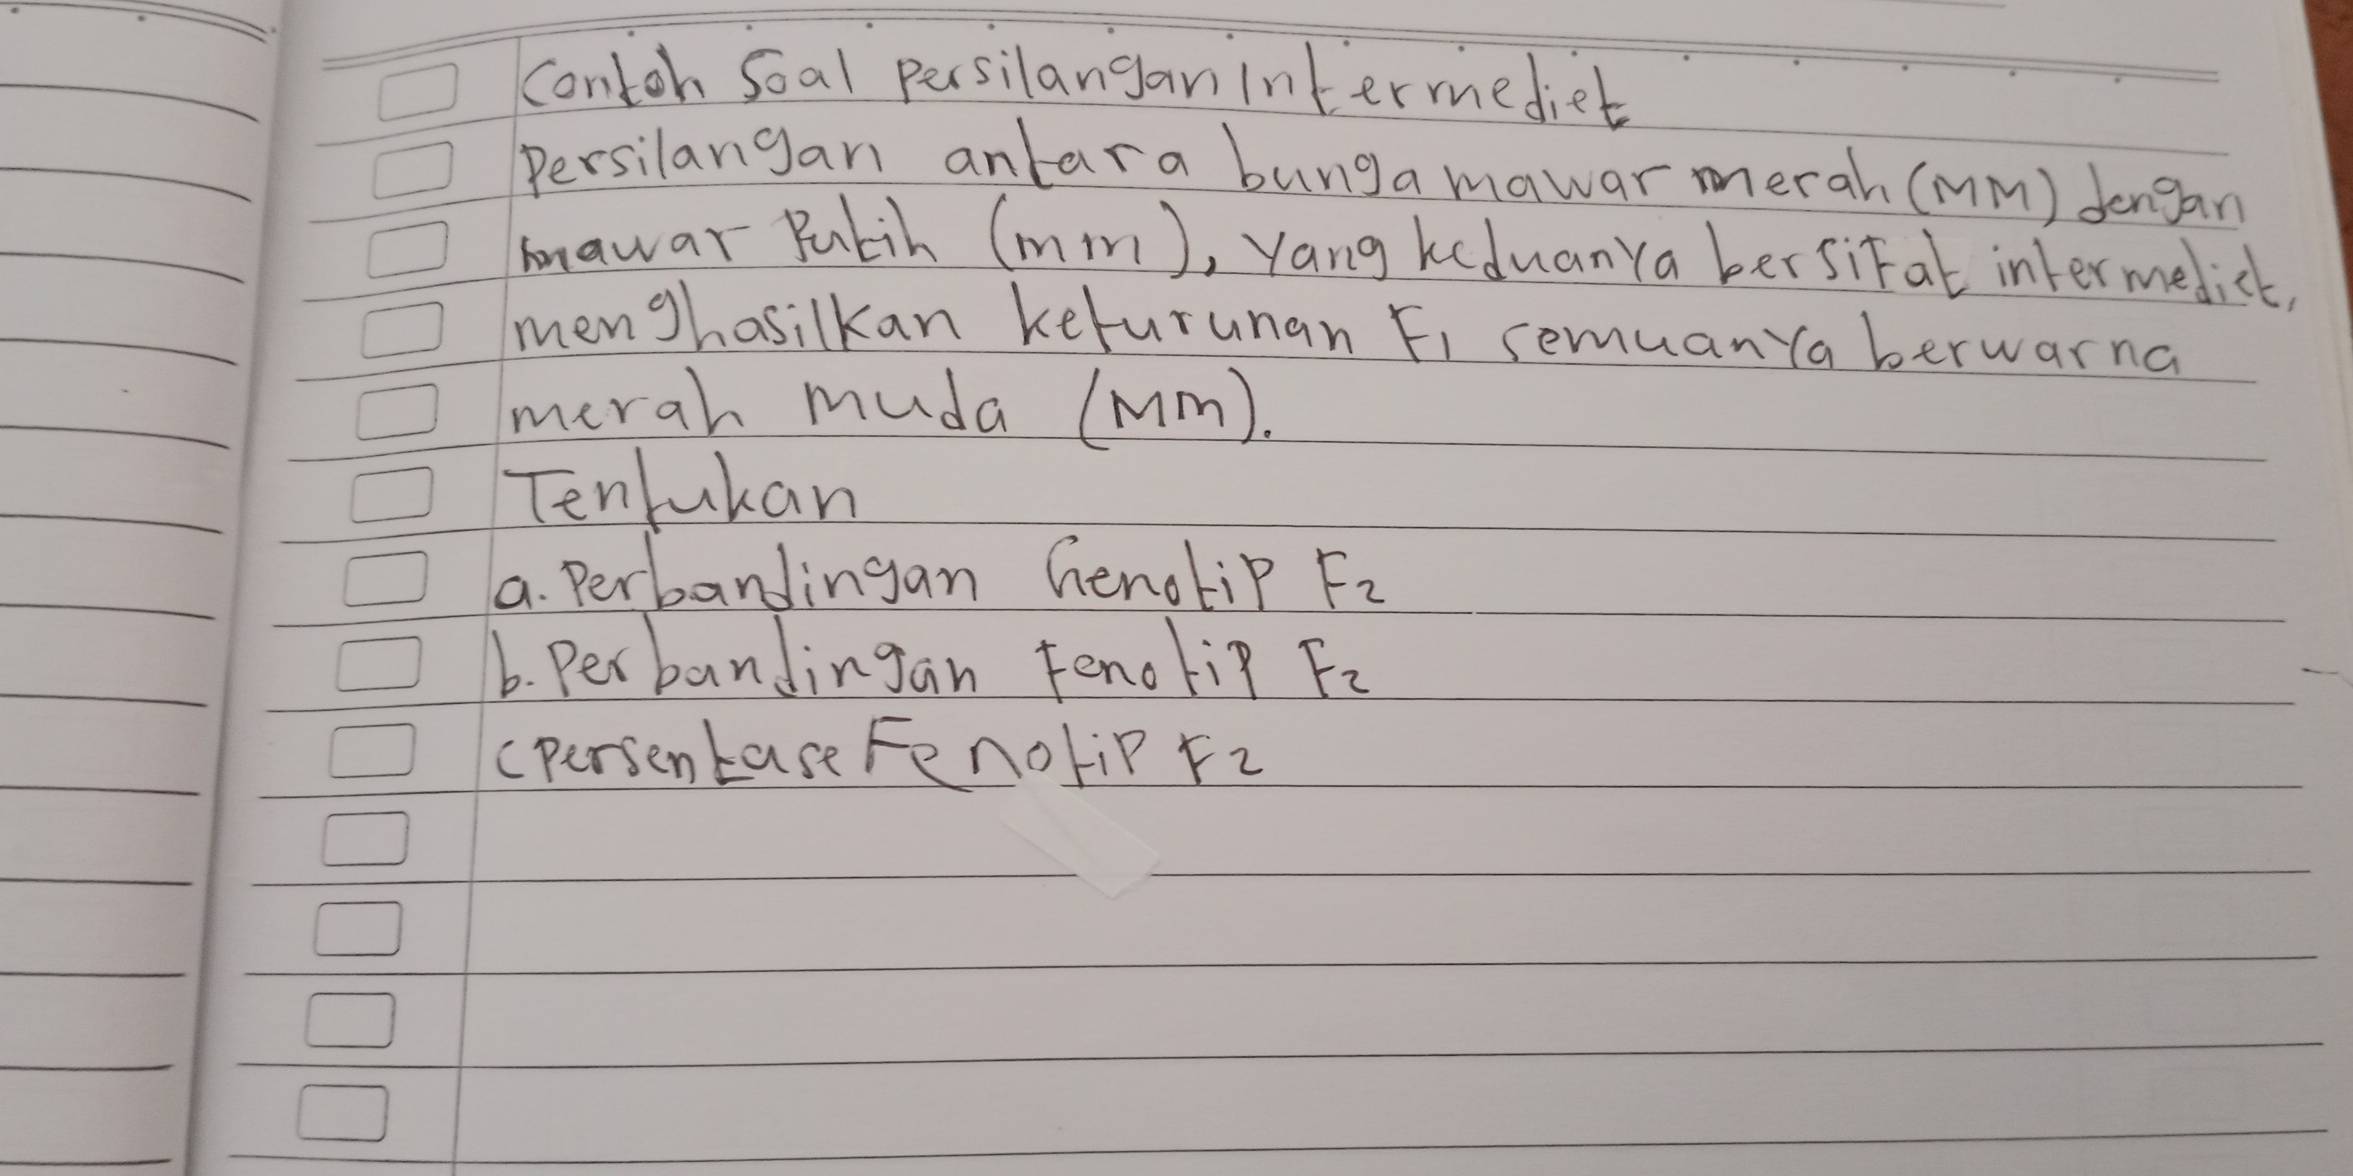 Contoh Soal Persilangan Intermediet
Persilangan antara bunga mawar merah (MM) dengan
mawar Putih (mm), yang keduanya bersifat intermediet,
menghasilkan keturunan F1 semuanya berwarna
merah muda (Mm).
Tentukan
a. Perbandingan Genotip F2
b. Perbandingan Fenotip F2
c Persentase Fenotip F2